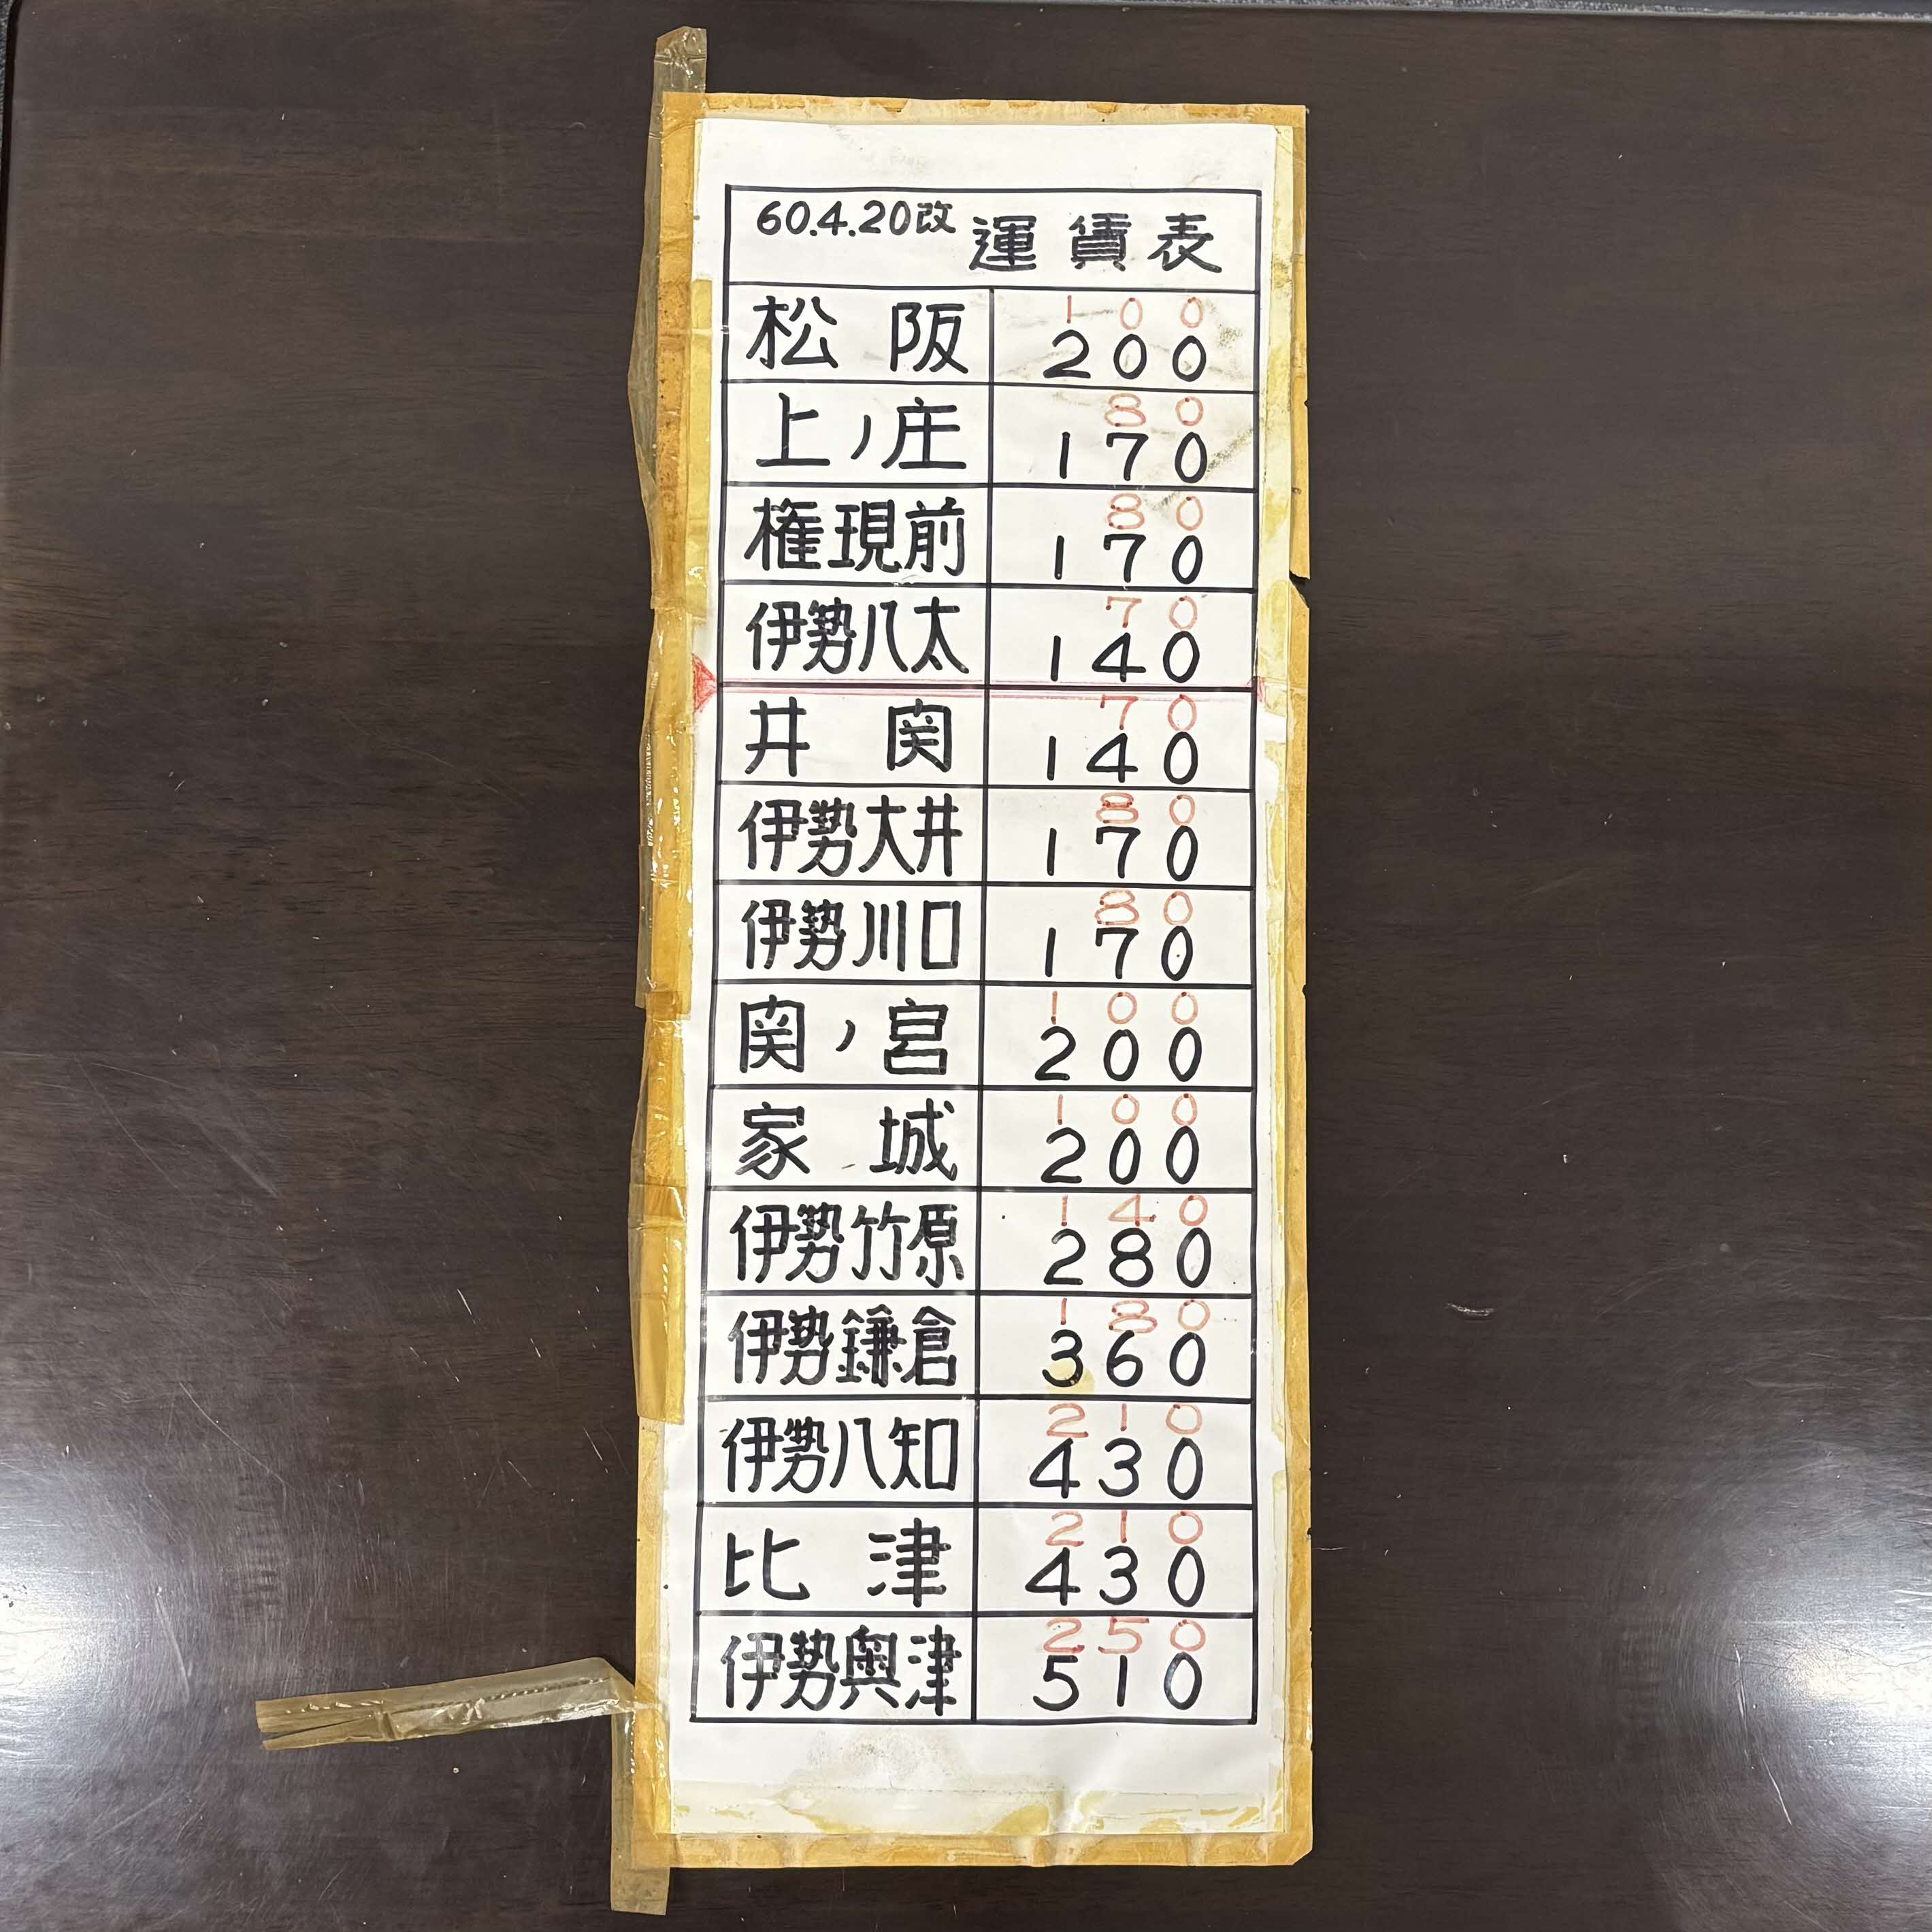 60.4.20改 運賃表
松阪 100 200
上ノ庄 80 170
権現前 80 170
伊勢八太 70 140
井関 70 140
伊勢大井 80 170
伊勢川口 80 170
関ノ宮 100 200
家城 100 200
伊勢竹原 140 280
伊勢鎌倉 180 360
伊勢八知 210 430
比津 210 430
伊勢奥津 250 510